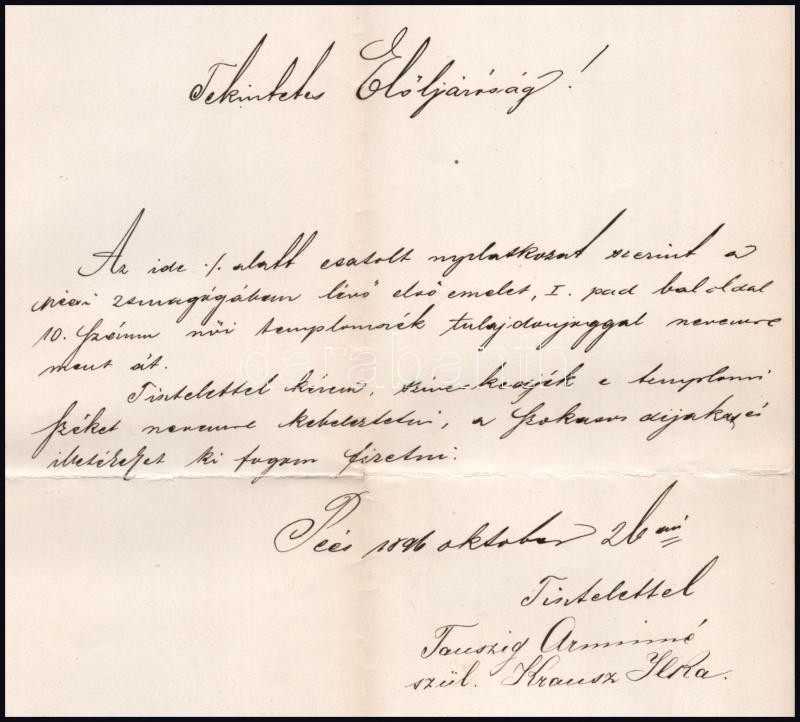 Tekintetes Elöljáróság!
Az ide ./. alatt csatolt nyilatkozat szerint a
pécsi zsinagógában lévő első emelet, I. pad bal oldal
10. számu női templomszék tulajdonjoggal nevemre
ment át.
Tisztelettel kérem, sziveskedjék e templomi
széket nevemre kebeleztetni, a szokásos dijakat és
illetéket ki fogom fizetni.
Pécs 1896 oktober 26 án
Tisztelettel
Tauszig Arminné
szül. Krausz Ilka.
darabanth